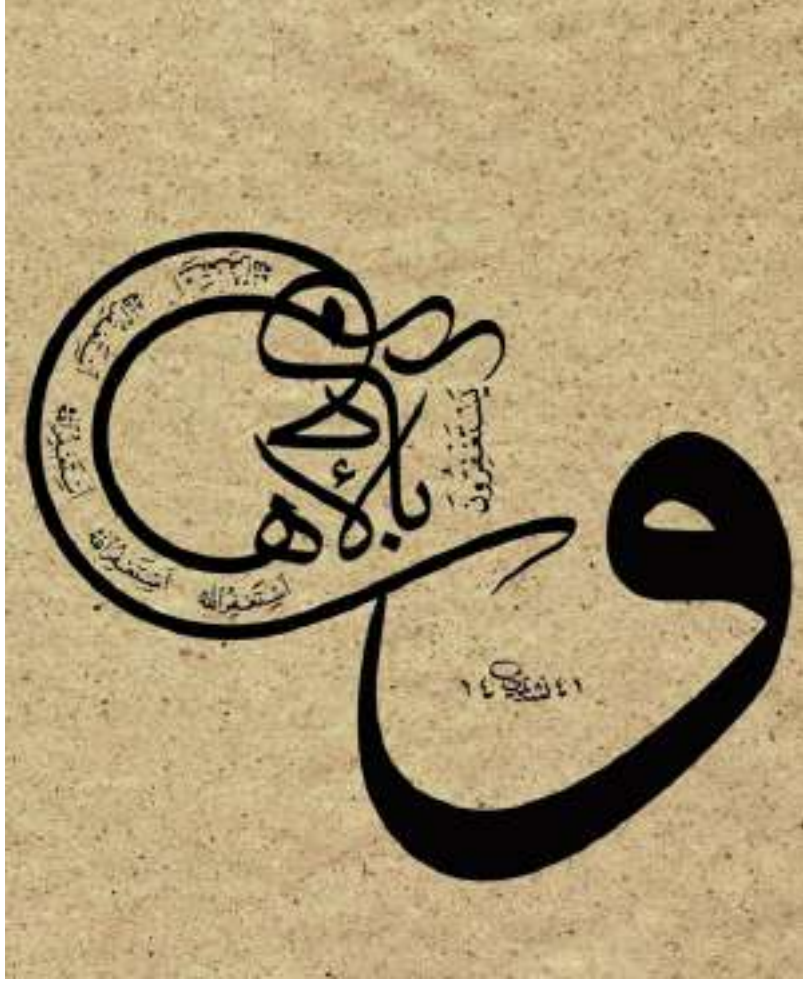 وبالأسحار هم
يستغفرون
أستغفر الله
أستغفر الله
أستغفر الله
أستغفر الله
أستغفر الله
١٤ ٤١